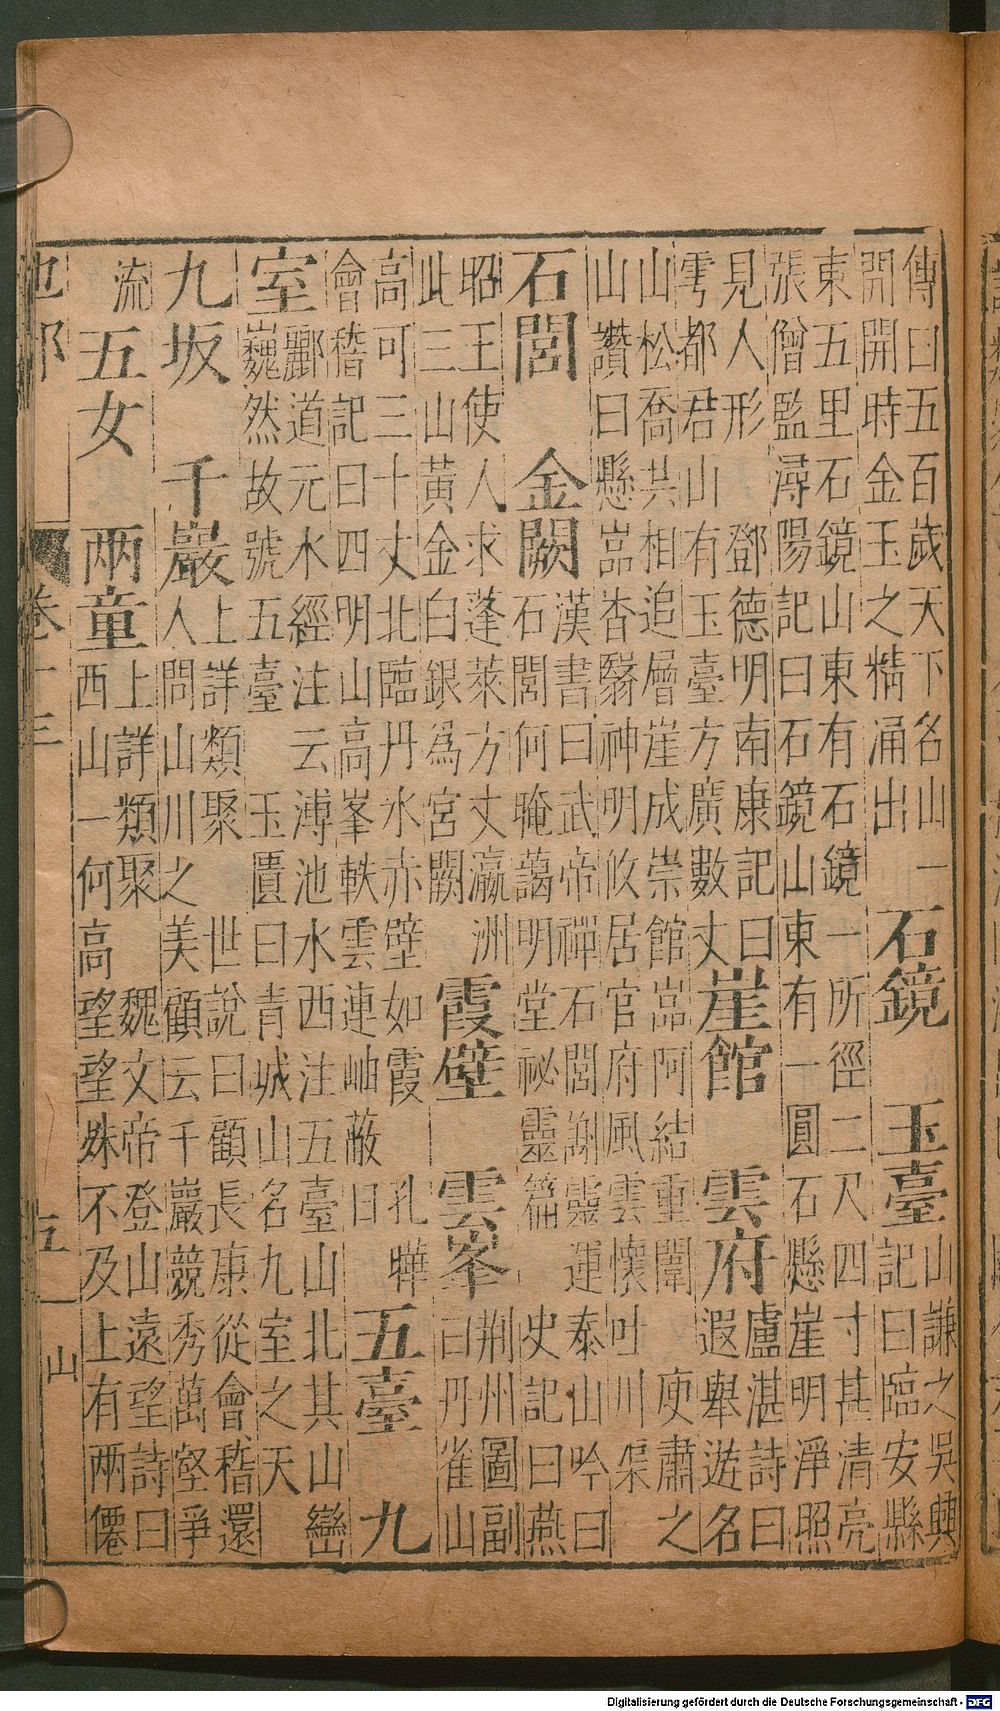 傳曰五百歲天下名山一
開開時金玉之精涌出
石鏡　玉臺
山謙之吳興
記曰臨安縣
東五里石鏡山東有石鏡一所徑二尺四寸甚清亮
張僧監潯陽記曰石鏡山東有一圓石懸崖明淨照
見人形　鄧德明南康記曰
雩都君山有玉臺方廣數丈
崖館　雲府
盧湛詩曰
遐舉遊名
山松喬共相追層崖成崇館嵓阿結重闈　庾肅之
山讚曰懸嵓杳翳神明攸居官府風雲懷吐川渠
石閭　金闕
漢書曰武帝禪石閭謝靈運泰山吟曰
石閭何晻藹明堂祕靈篇　史記曰燕
昭王使人求蓬萊方丈瀛洲
此三山黃金白銀為宮闕
霞壁　雲峯
荆州圖副
曰丹雀山
高可三十丈北臨丹水赤壁如霞　孔曄
會稽記曰四明山高峯軼雲連岫蔽日
五臺　九
室
酈道元水經注云溥池水西注五臺山北其山巒
巍然故號五臺　玉匱曰青城山名九室之天
九坂　千巖
上詳類聚　世說曰顧長康從會稽還
人問山川之美顧云千巖競秀萬壑爭
流
五女　兩童
上詳類聚　魏文帝登山遠望詩曰
西山一何高望望殊不及上有兩僊
地部　卷十三　五　山
Digitalisierung gefördert durch die Deutsche Forschungsgemeinschaft - DFG